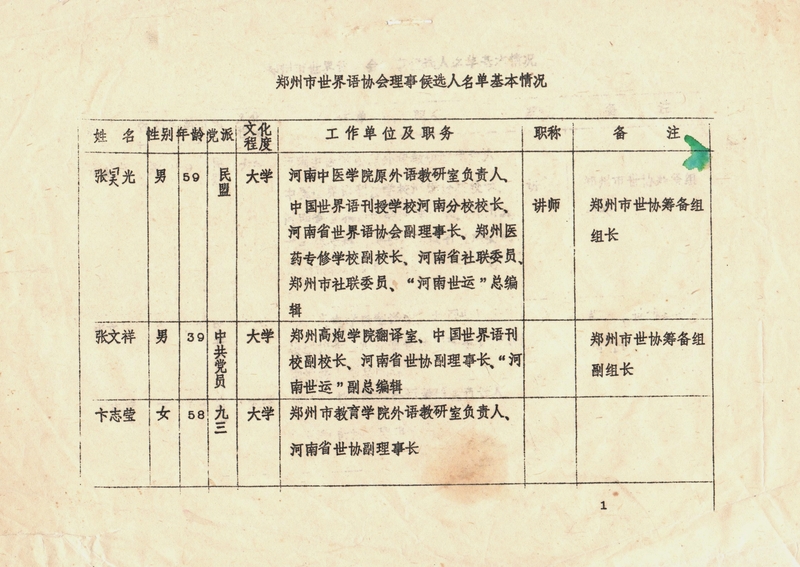 郑州市世界语协会理事侯选人名单基本情况
姓 名 性别 年龄 党派 文化程度 工作单位及职务 职称 备 注
张昊光 男 59 民盟 大学 河南中医学院原外语教研室负责人、
中国世界语刊授学校河南分校校长、 讲师 郑州市世协筹备组
河南省世界语协会副理事长、郑州医 组长
药专修学校副校长、河南省社联委员、
郑州市社联委员、“河南世运”总编
辑
张文祥 男 39 中共党员 大学 郑州高炮学院翻译室、中国世界语刊 郑州市世协筹备组
校副校长、河南省世协副理事长、“河 副组长
南世运”副总编辑
卞志莹 女 58 九三 大学 郑州市教育学院外语教研室负责人、
河南省世协副理事长
1